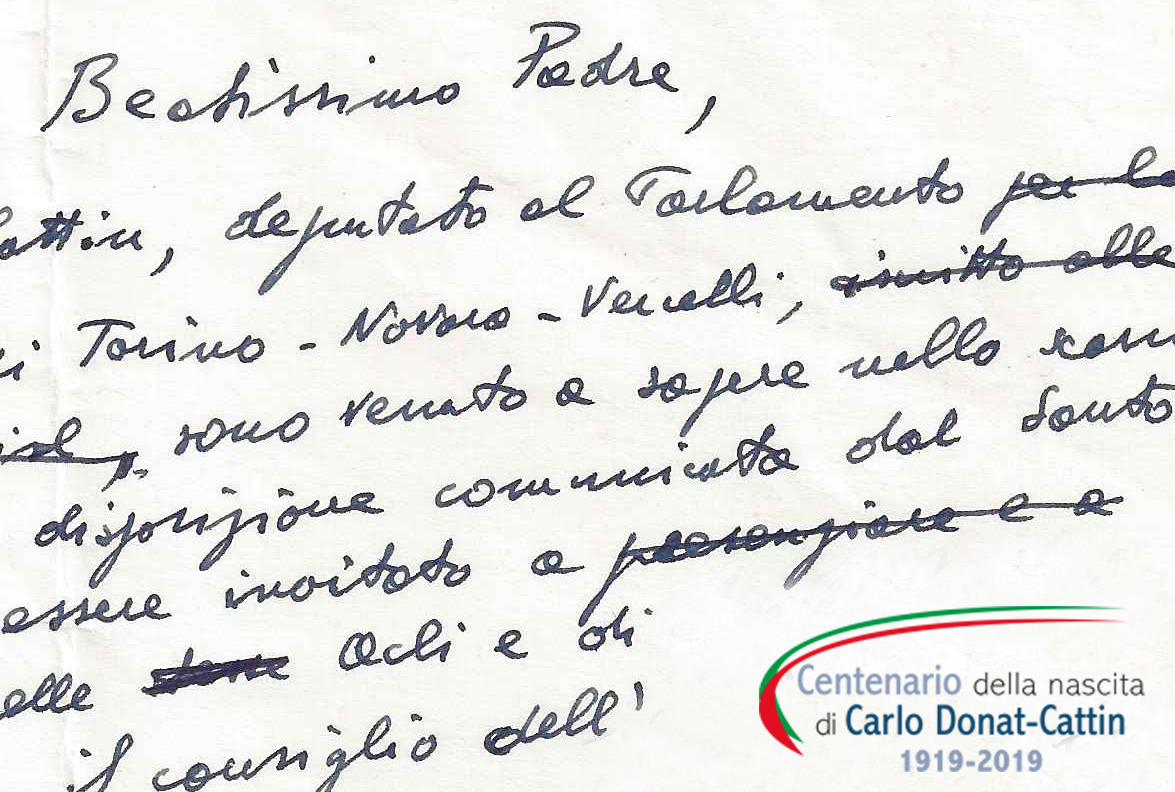 Beatissimo Padre,
attin, deputato al Parlamento per la
i Torino - Novara - Vercelli, iscritto alle
isl, sono venuto a sapere nello scors
disposizione comunicata dal Santo
essere invitato a presenziare e a
elle Acli e di
il consiglio dell'
Centenario della nascita
di Carlo Donat-Cattin
1919-2019